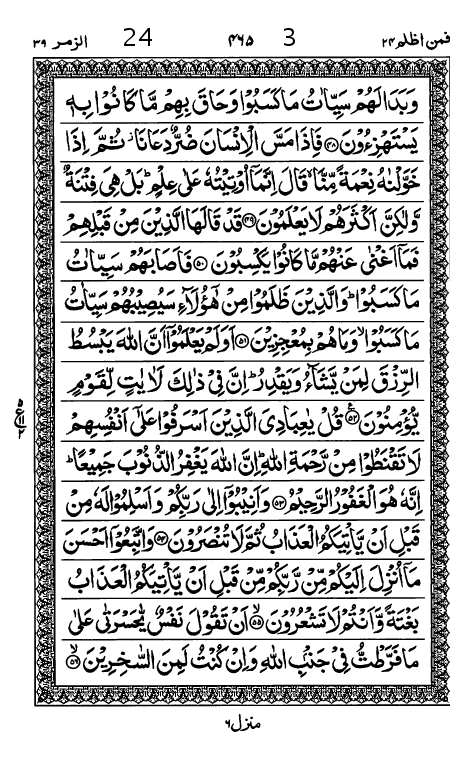 فمن اظلم ۲۴ 3 ۴۶۵ 24 الزمر ۳۹
وَبَدَا لَهُمْ سَيِّاٰتُ مَا كَسَبُوْا وَحَاقَ بِهِمْ مَّا كَانُوْا بِهٖ
يَسْتَهْزِءُوْنَ ﴿۴۸﴾ فَاِذَا مَسَّ الْاِنْسَانَ ضُرٌّ دَعَانَا ۫ ثُمَّ اِذَا
خَوَّلْنٰهُ نِعْمَةً مِّنَّا ۙ قَالَ اِنَّمَاۤ اُوْتِيْتُهٗ عَلٰى عِلْمٍ ؕ بَلْ هِىَ فِتْنَةٌ
وَّلٰكِنَّ اَكْثَرَهُمْ لَا يَعْلَمُوْنَ ﴿۴۹﴾ قَدْ قَالَهَا الَّذِيْنَ مِنْ قَبْلِهِمْ
فَمَاۤ اَغْنٰى عَنْهُمْ مَّا كَانُوْا يَكْسِبُوْنَ ﴿۵۰﴾ فَاَصَابَهُمْ سَيِّاٰتُ
مَا كَسَبُوْا ؕ وَالَّذِيْنَ ظَلَمُوْا مِنْ هٰۤؤُلَآءِ سَيُصِيْبُهُمْ سَيِّاٰتُ
مَا كَسَبُوْا ۙ وَمَا هُمْ بِمُعْجِزِيْنَ ﴿۵۱﴾ اَوَلَمْ يَعْلَمُوْۤا اَنَّ اللّٰهَ يَبْسُطُ
الرِّزْقَ لِمَنْ يَّشَآءُ وَيَقْدِرُ ؕ اِنَّ فِىْ ذٰلِكَ لَاٰيٰتٍ لِّقَوْمٍ
يُّؤْمِنُوْنَ ﴿۵۲﴾ قُلْ يٰعِبَادِىَ الَّذِيْنَ اَسْرَفُوْا عَلٰۤى اَنْفُسِهِمْ
لَا تَقْنَطُوْا مِنْ رَّحْمَةِ اللّٰهِ ؕ اِنَّ اللّٰهَ يَغْفِرُ الذُّنُوْبَ جَمِيْعًا ؕ
اِنَّهٗ هُوَ الْغَفُوْرُ الرَّحِيْمُ ﴿۵۳﴾ وَاَنِيْبُوْۤا اِلٰى رَبِّكُمْ وَاَسْلِمُوْا لَهٗ مِنْ
قَبْلِ اَنْ يَّاْتِيَكُمُ الْعَذَابُ ثُمَّ لَا تُنْصَرُوْنَ ﴿۵۴﴾ وَاتَّبِعُوْۤا اَحْسَنَ
مَاۤ اُنْزِلَ اِلَيْكُمْ مِّنْ رَّبِّكُمْ مِّنْ قَبْلِ اَنْ يَّاْتِيَكُمُ الْعَذَابُ
بَغْتَةً وَّاَنْتُمْ لَا تَشْعُرُوْنَ ﴿۵۵﴾ اَنْ تَقُوْلَ نَفْسٌ يّٰحَسْرَتٰى عَلٰى
مَا فَرَّطْتُّ فِىْ جَنْۢبِ اللّٰهِ وَاِنْ كُنْتُ لَمِنَ السّٰخِرِيْنَ ﴿۵۶﴾
منزل ۶